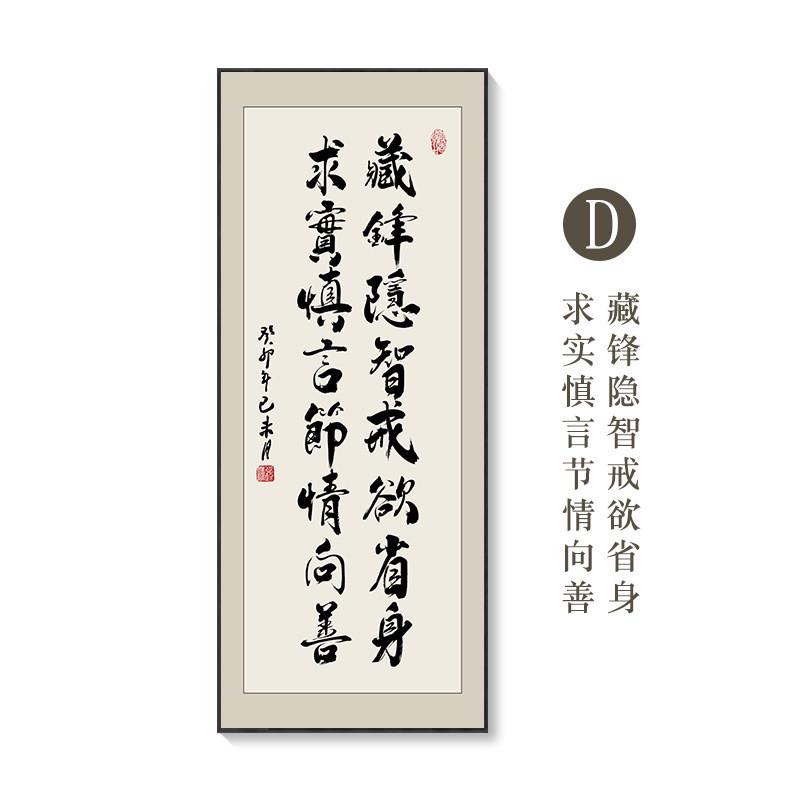 藏鋒隱智戒欲省身
求實慎言節情向善
癸卯年己未月
D
藏锋隐智戒欲省身
求实慎言节情向善